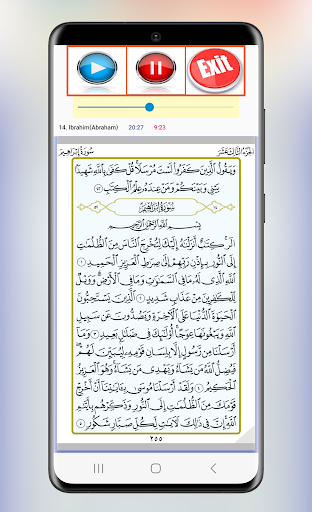 Exit
14. Ibrahim(Abraham) 20:27 9:23
سورة إبراهيم الجزء الثالث عشر
وَيَقُولُ الَّذِينَ كَفَرُوا لَسْتَ مُرْسَلًا قُلْ كَفَىٰ بِاللَّهِ شَهِيدًا
بَيْنِي وَبَيْنَكُمْ وَمَنْ عِندَهُ عِلْمُ الْكِتَٰبِ ٤٣
سُورَةُ إِبْرَاهِيمَ
بِسْمِ اللَّهِ الرَّحْمَٰنِ الرَّحِيمِ
الٓر كِتَٰبٌ أَنزَلْنَٰهُ إِلَيْكَ لِتُخْرِجَ النَّاسَ مِنَ الظُّلُمَٰتِ
إِلَى النُّورِ بِإِذْنِ رَبِّهِمْ إِلَىٰ صِرَٰطِ الْعَزِيزِ الْحَمِيدِ ١
اللَّهِ الَّذِي لَهُ مَا فِي السَّمَٰوَٰتِ وَمَا فِي الْأَرْضِ وَوَيْلٌ
لِّلْكَٰفِرِينَ مِنْ عَذَابٍ شَدِيدٍ ٢ الَّذِينَ يَسْتَحِبُّونَ
الْحَيَوٰةَ الدُّنْيَا عَلَى الْآخِرَةِ وَيَصُدُّونَ عَن سَبِيلِ
اللَّهِ وَيَبْغُونَهَا عِوَجًا أُولَٰئِكَ فِي ضَلَٰلٍ بَعِيدٍ ٣ وَمَا
أَرْسَلْنَا مِن رَّسُولٍ إِلَّا بِلِسَانِ قَوْمِهِ لِيُبَيِّنَ لَهُمْ
فَيُضِلُّ اللَّهُ مَن يَشَاءُ وَيَهْدِي مَن يَشَاءُ وَهُوَ الْعَزِيزُ
الْحَكِيمُ ٤ وَلَقَدْ أَرْسَلْنَا مُوسَىٰ بِـَٔايَٰتِنَا أَنْ أَخْرِجْ
قَوْمَكَ مِنَ الظُّلُمَٰتِ إِلَى النُّورِ وَذَكِّرْهُم بِأَيَّىٰمِ
اللَّهِ إِنَّ فِي ذَٰلِكَ لَآيَٰتٍ لِّكُلِّ صَبَّارٍ شَكُورٍ ٥
٢٥٥